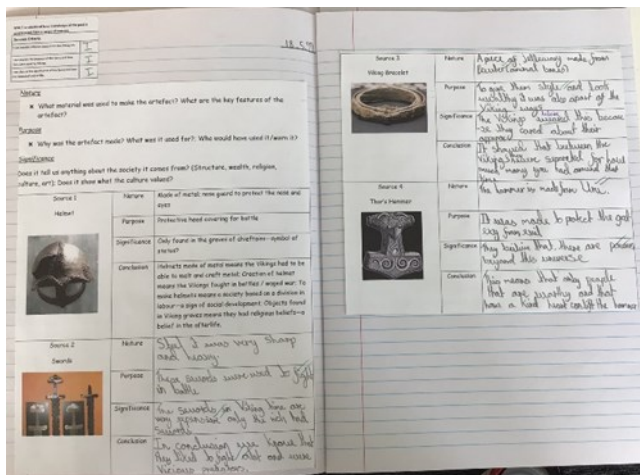 Nature
What material was used to make the artefact? What are the key features of the
artefact?
Purpose
Why was the artefact made? What was it used for? Who would have used it/worn it?
Significance
Does it tell us anything about the society it comes from? (Structure, wealth, religion,
culture, art): Does it show what the culture valued?
Source 1
Helmet
Nature
Made of metal; nose guard to protect the nose and
eyes
Purpose
Protective head covering for battle
Significance
Only found in the graves of chieftains—symbol of
status?
Conclusion
Helmets made of metal means the Vikings had to be
able to melt and craft metal; Creation of helmet
means the Vikings fought in battles / waged war; To
make helmets means a society based on a division in
labour—a sign of social development. Objects found
in Viking graves means they had religious beliefs—a
belief in the afterlife.
Source 2
Swords
Nature
Steel it was very sharp
and heavy.
Purpose
These swords were used to fight
in battle
Significance
The swords in Viking time are
very expensive only the rich had
swords
Conclusion
In conclusion we know that
they liked to fight alot and were
vicious predators.
Source 3
Viking Bracelet
Nature
A piece of jewellery made from
(animal bones)
Purpose
To give them style and look
wealthy it was also apart of the
Viking
Significance
The Vikings this becau
-se they cared about their
Conclusion
It showed that between the
Viking
much money you had around that
time
Source 4
Thor's Hammer
Nature
The hammer is made from
Purpose
It was made to protect the
from evil
Significance
They believe that there are
beyond this universe
Conclusion
This means that only people
that are worthy and that
have a kind heart can lift the hammer